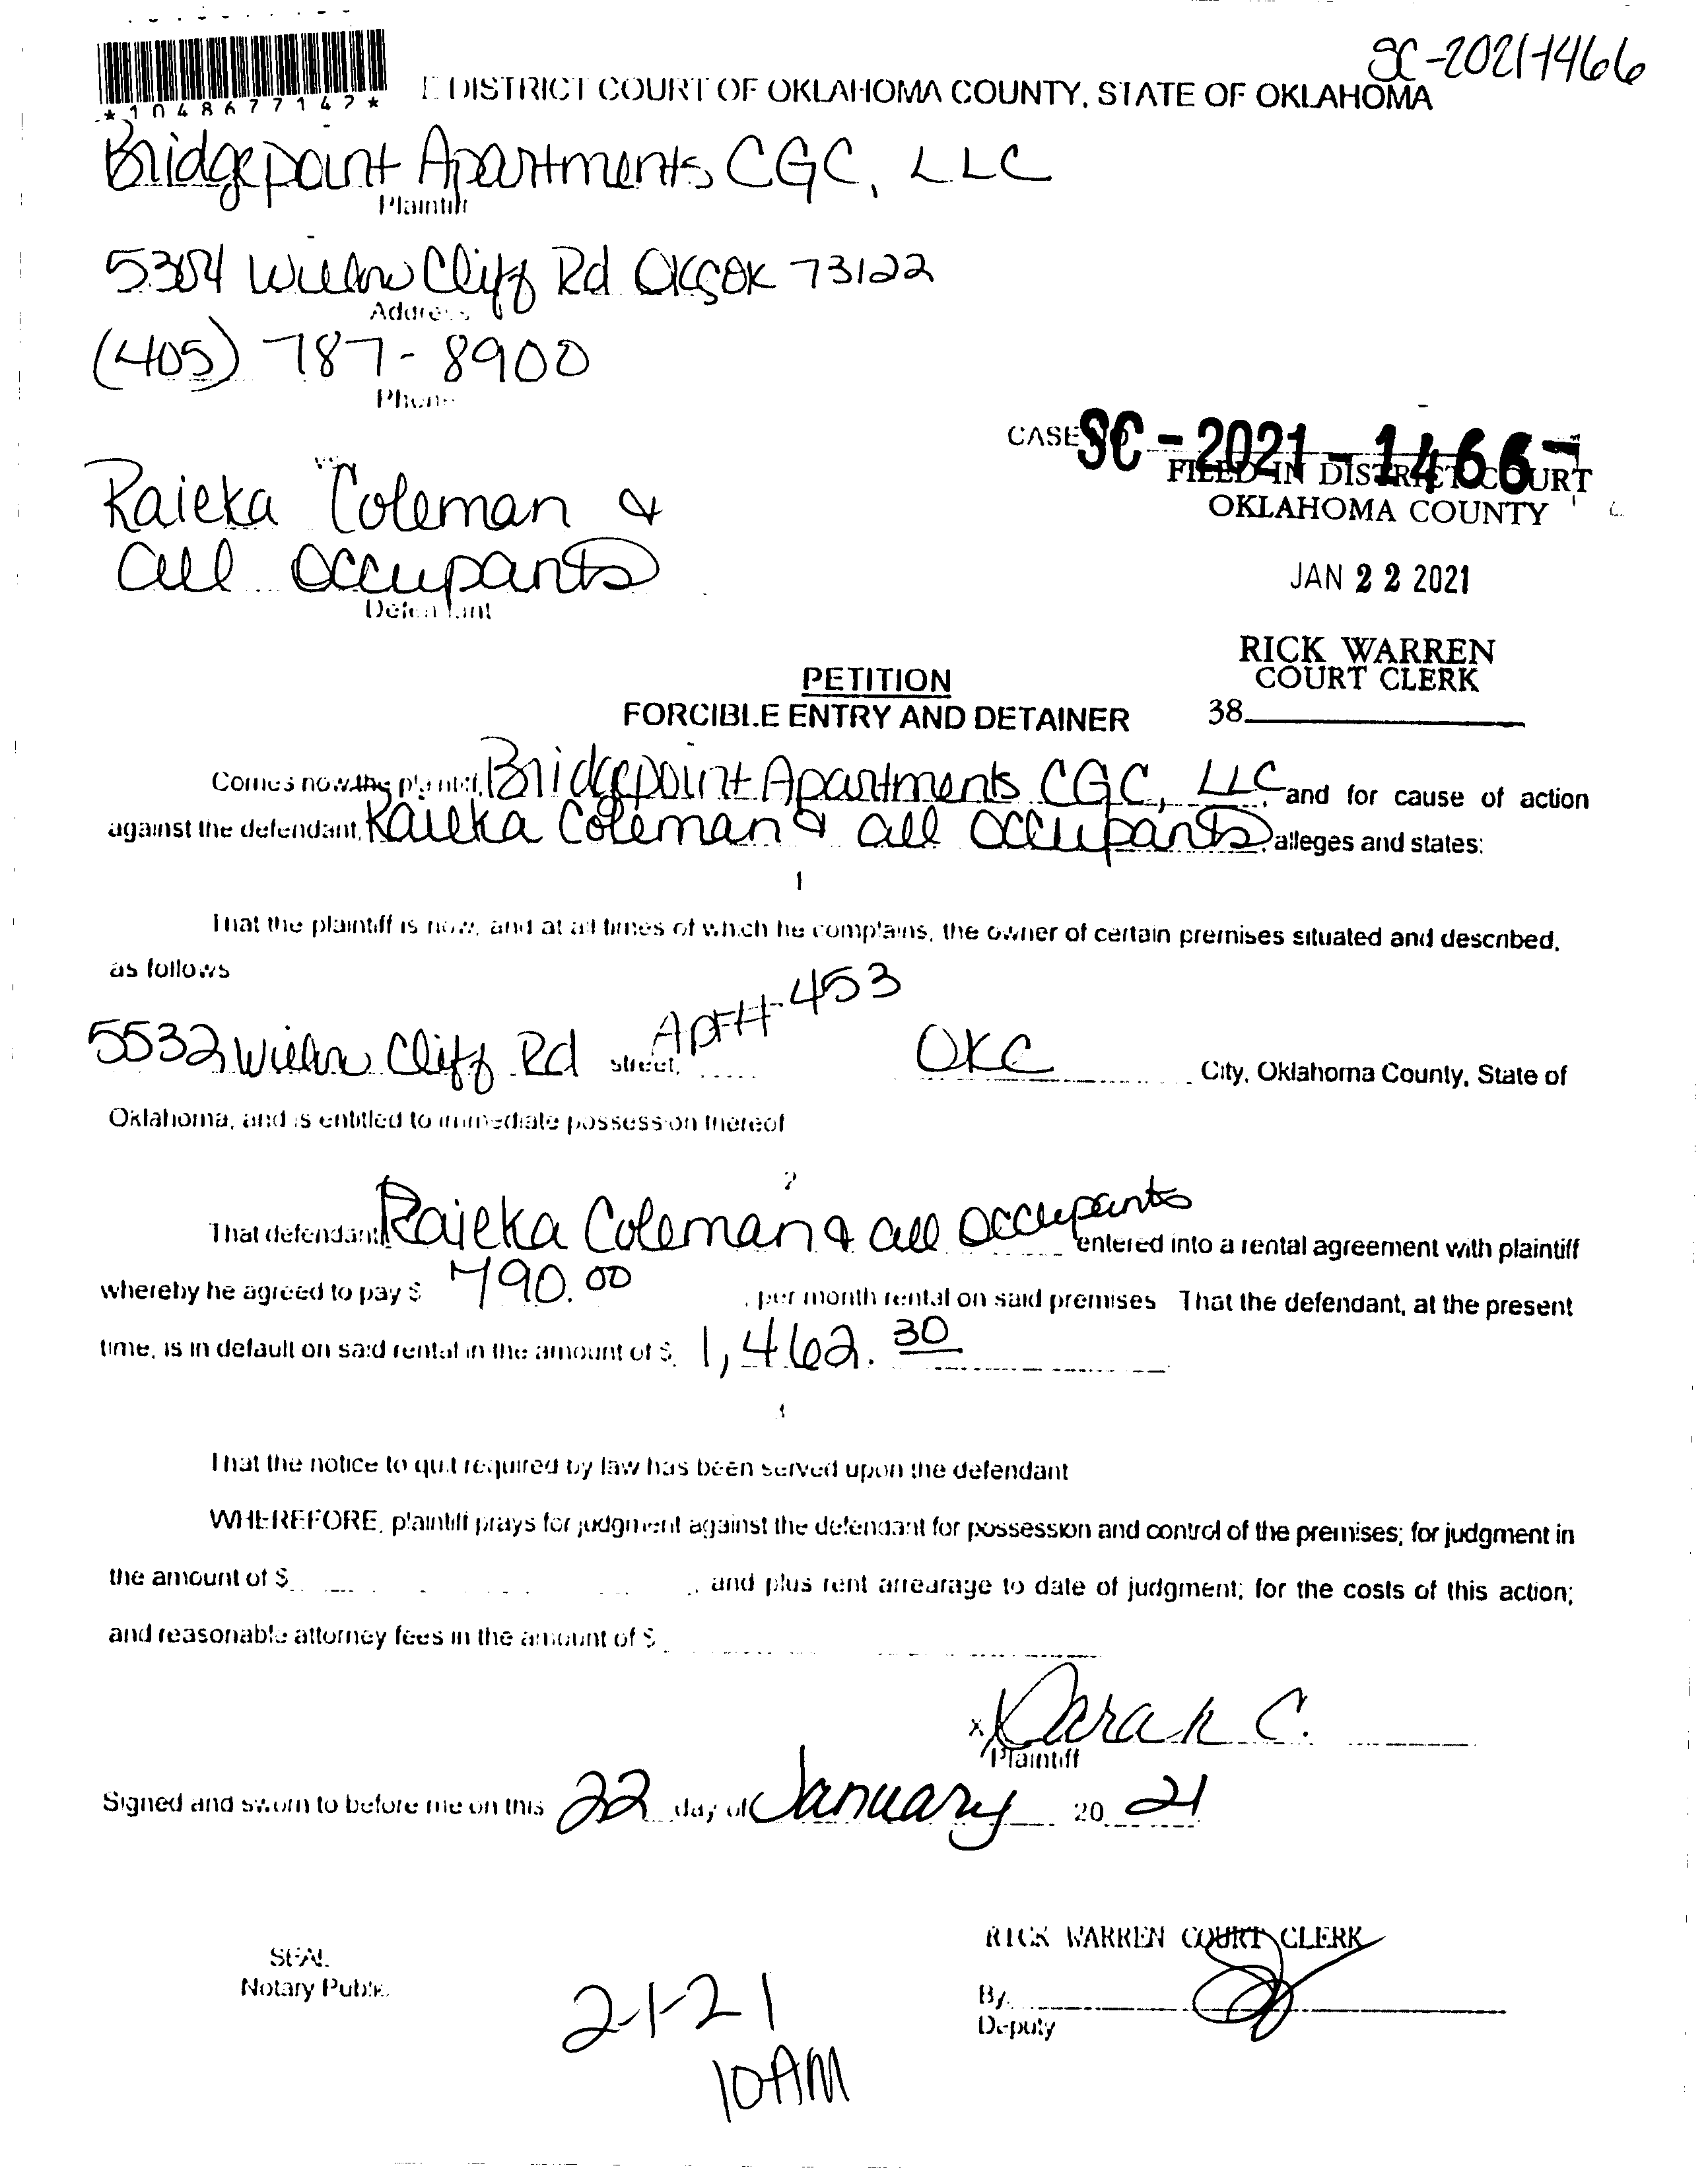 SC-2021-1466
*1048677142*
DISTRICT COURT OF OKLAHOMA COUNTY, STATE OF OKLAHOMA
Bridgepoint Apartments CGC, LLC
Plaintiff
Willow Cliff Rd OKC OK 73122
Address
(405) 787-8900
Phone
CASE NO SC-2021-1466-
FILED IN DISTRICT COURT
OKLAHOMA COUNTY
vs
Raieka Coleman &
all occupants
Defendant
JAN 22 2021
RICK WARREN
COURT CLERK
38
PETITION
FORCIBLE ENTRY AND DETAINER
Comes now the plaintiff, Bridgepoint Apartments CGC, LLC, and for cause of action
against the defendant, Raieka Coleman & all occupants, alleges and states:
1
That the plaintiff is now, and at all times of which he complains, the owner of certain premises situated and described,
as follows
5532 Willow Cliff Rd street, Apt# 453 OKC City, Oklahoma County, State of
Oklahoma, and is entitled to immediate possession thereof
2
That defendant Raieka Coleman & all occupants entered into a rental agreement with plaintiff
whereby he agreed to pay $ 790.00, per month rental on said premises That the defendant, at the present
time, is in default on said rental in the amount of $ 1,462.30
3
That the notice to quit required by law has been served upon the defendant
WHEREFORE, plaintiff prays for judgment against the defendant for possession and control of the premises; for judgment in
the amount of $ , and plus rent arrearage to date of judgment; for the costs of this action;
and reasonable attorney fees in the amount of $
x Sarah C.
Plaintiff
Signed and sworn to before me on this 22 day of January 20 21
RICK WARREN COURT CLERK
SEAL
Notary Public
2-1-21
10AM
By
Deputy